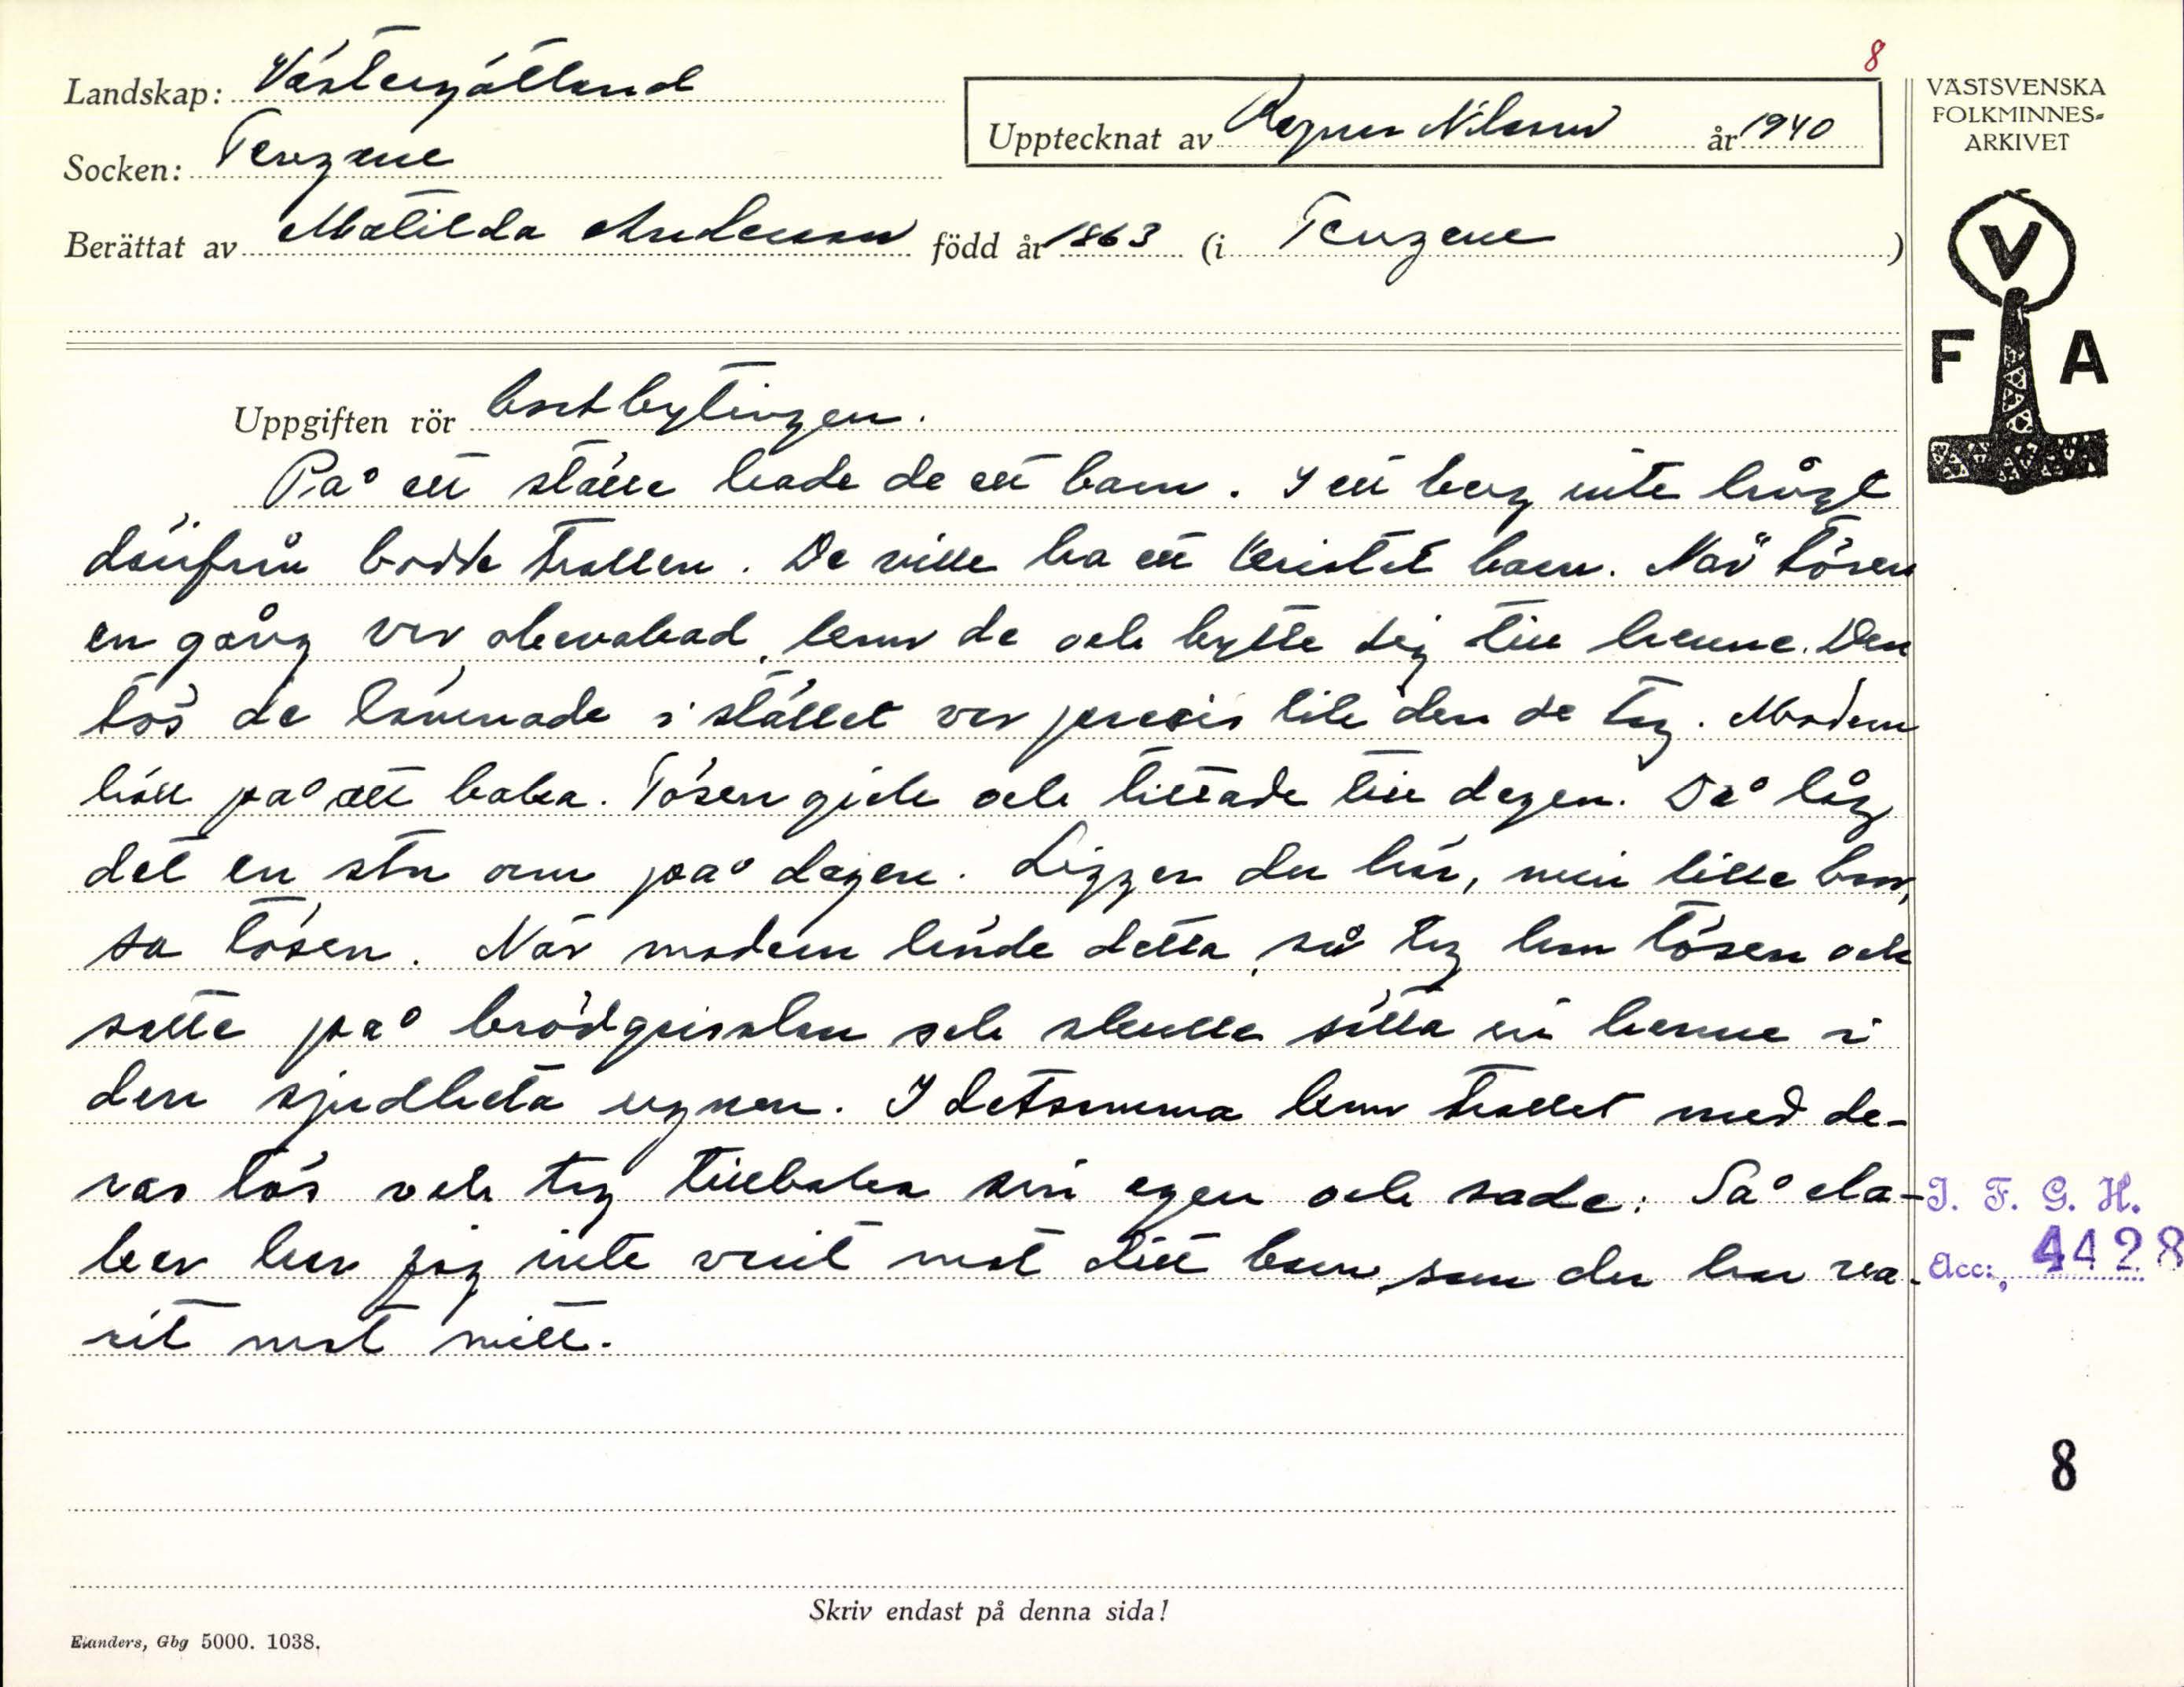 8
Landskap: Västergötland
Upptecknat av Ragnar Nilsson år 1940
Socken: Tengene
Berättat av Matilda Andersson född år 1863 (i Tengene)
VÄSTSVENSKA
FOLKMINNES-
ARKIVET
V
F A
Uppgiften rör bortbytingen.
På ett ställe hade de ett barn. I ett berg inte långt
därifrån bodde trollen. De ville ha ett kristet barn. När tösen
en gång var obevakad, kom de och bytte sig till henne. Den
tös de lämnade i stället var precis lik den de tog. Modern
höll på att baka. Tösen gick och tittade till degen. Då låg
det en stor orm på degen. Ligger du här, min lille bror,
sa tösen. När modern hörde detta, så tog hon tösen och
satte på brödgrisslan och skulle sätta in henne i
den sjudheta ugnen. I detsamma kom trollet med de-
ras tös och tog tillbaka sin egen och sade: Så ela-
ker har jag inte varit mot ditt barn, som du har va-
rit mot mitt.
I. F. G. H.
Acc:, 4428
8
Skriv endast på denna sida!
Elanders, Gbg 5000. 1038.